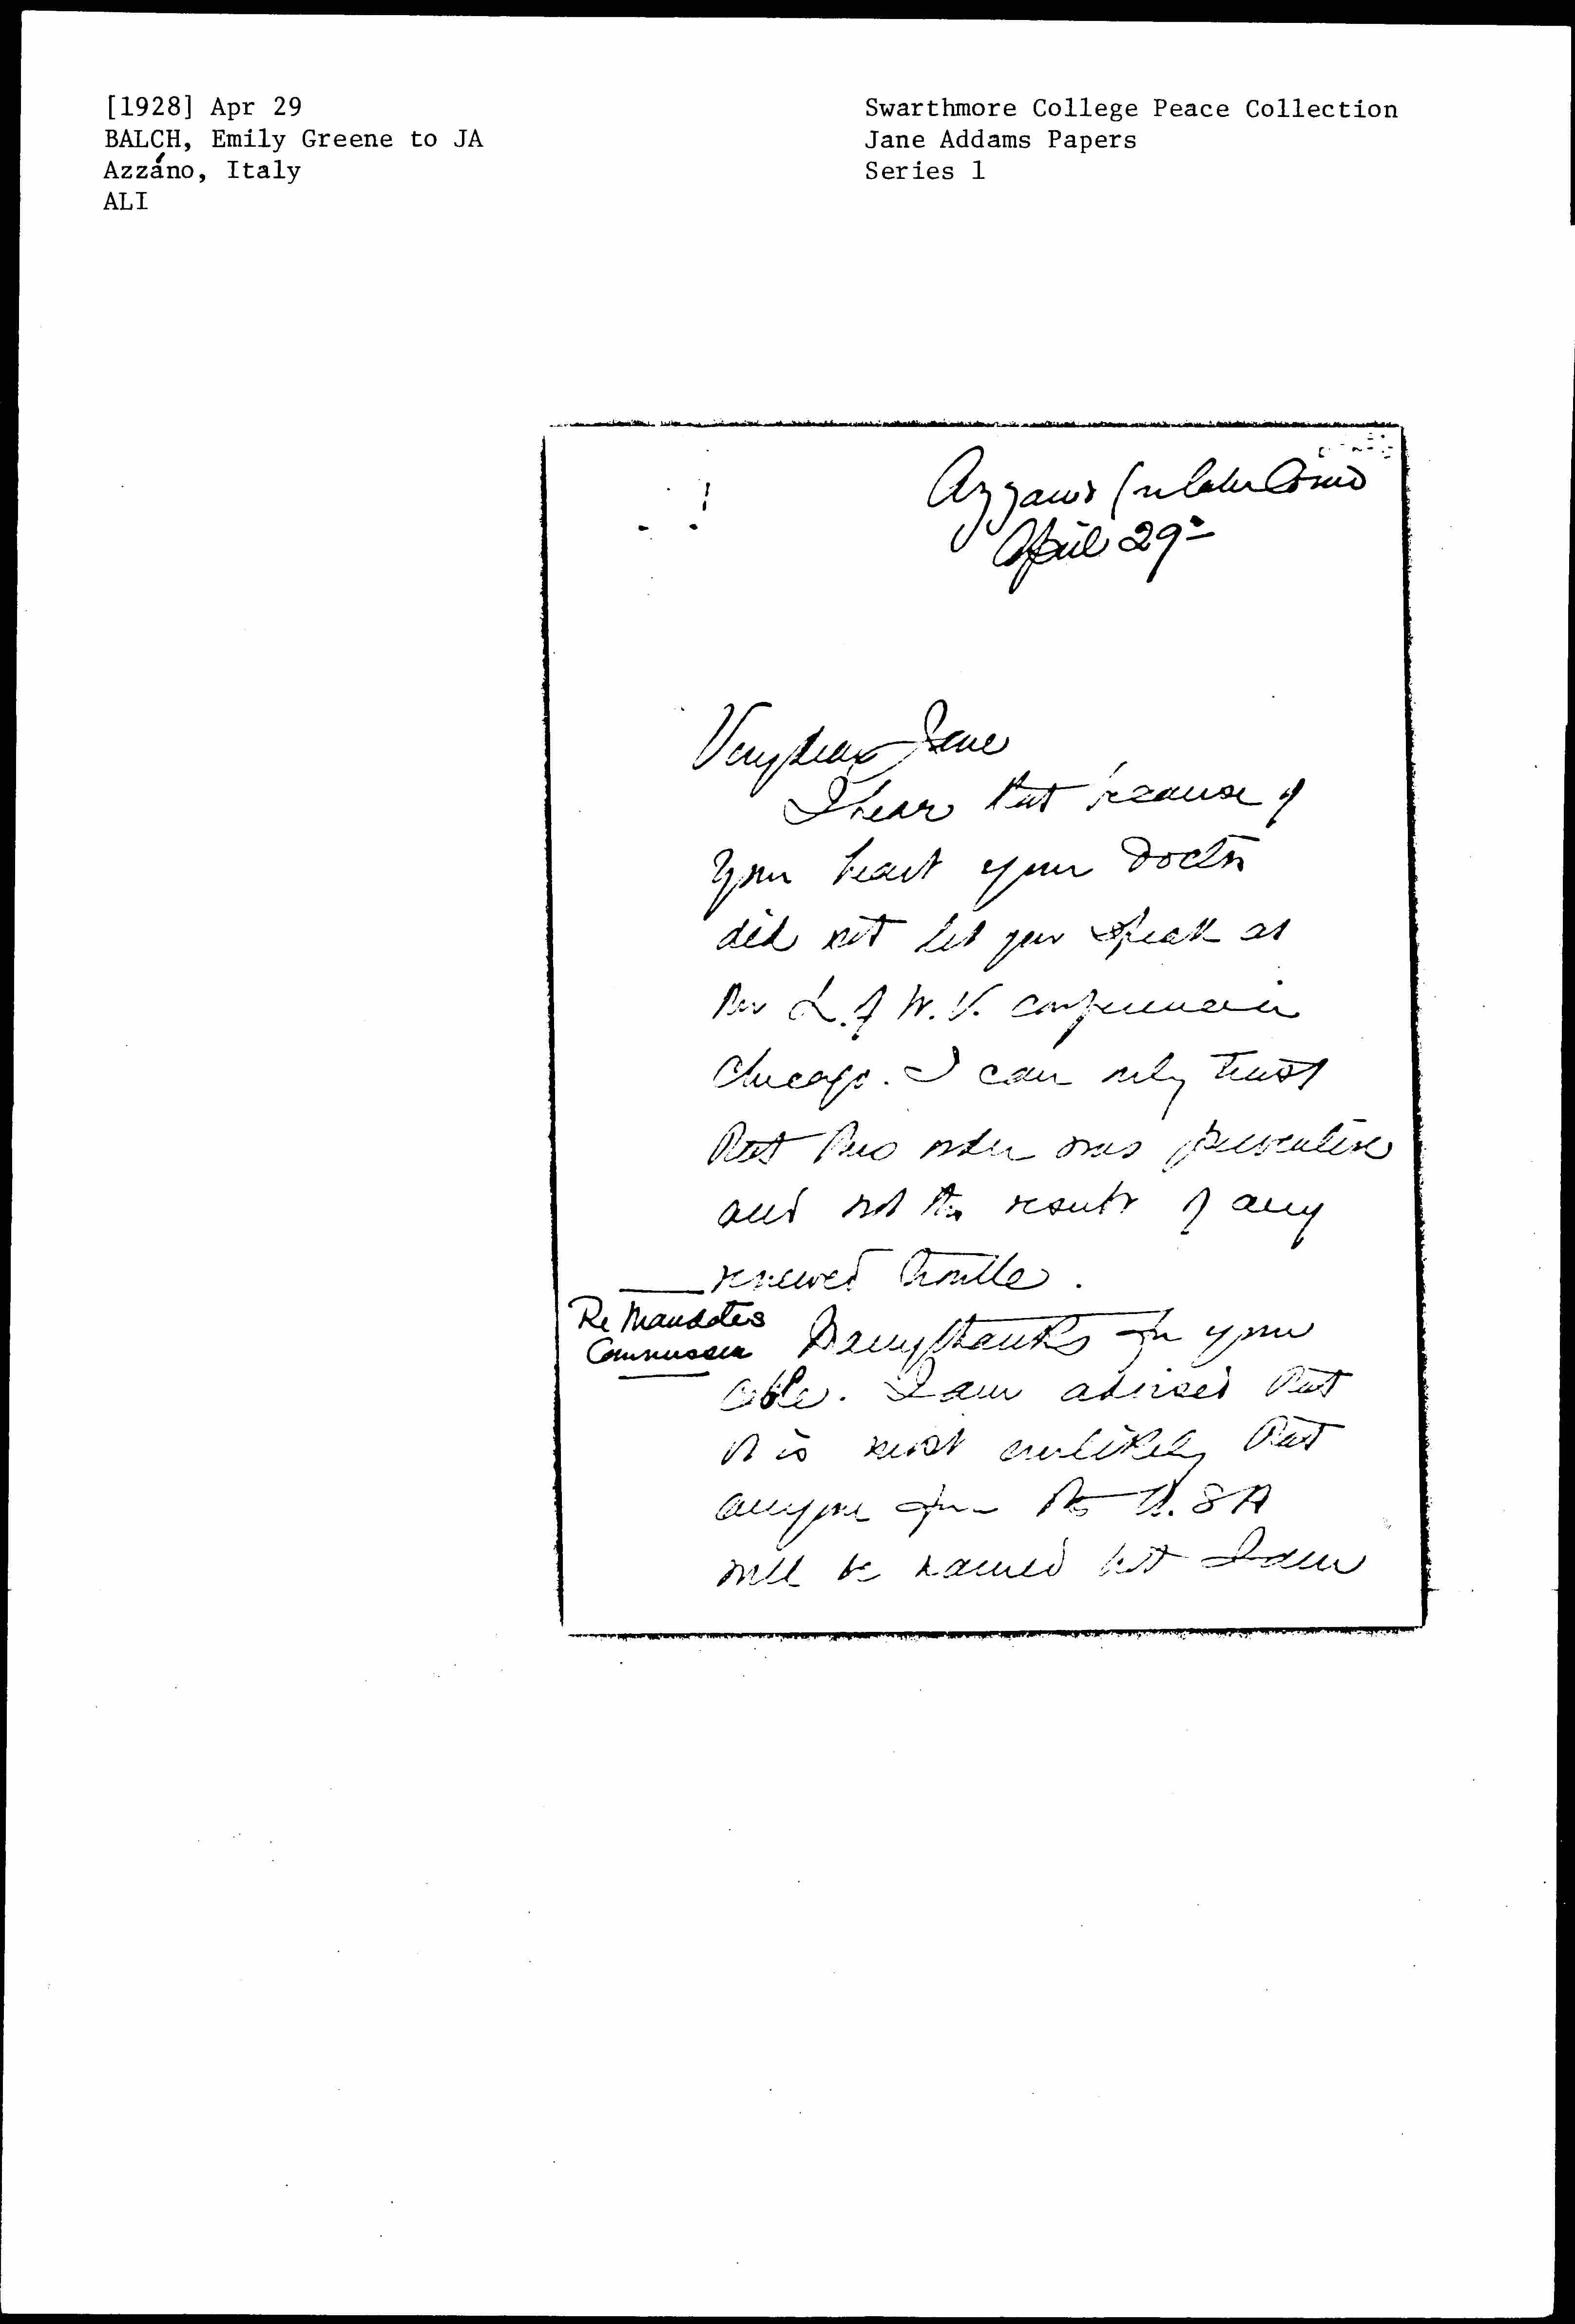 [1928] Apr 29
BALCH, Emily Greene to JA
Azzáno, Italy
ALI
Swarthmore College Peace Collection
Jane Addams Papers
Series 1
Azzano (Lake Como
April 29-
Very dear Jane
I hear that because of
your heart your doctor
did not let you speak at
the L. of W. V. conference in
Chicago. I can only trust
that this order was preventive
and not the result of any
renewed trouble.
Re Mandates
Commission
Many thanks for your
cable. I am advised that
it is most unlikely that
anyone from the U.S A
will be named but I am